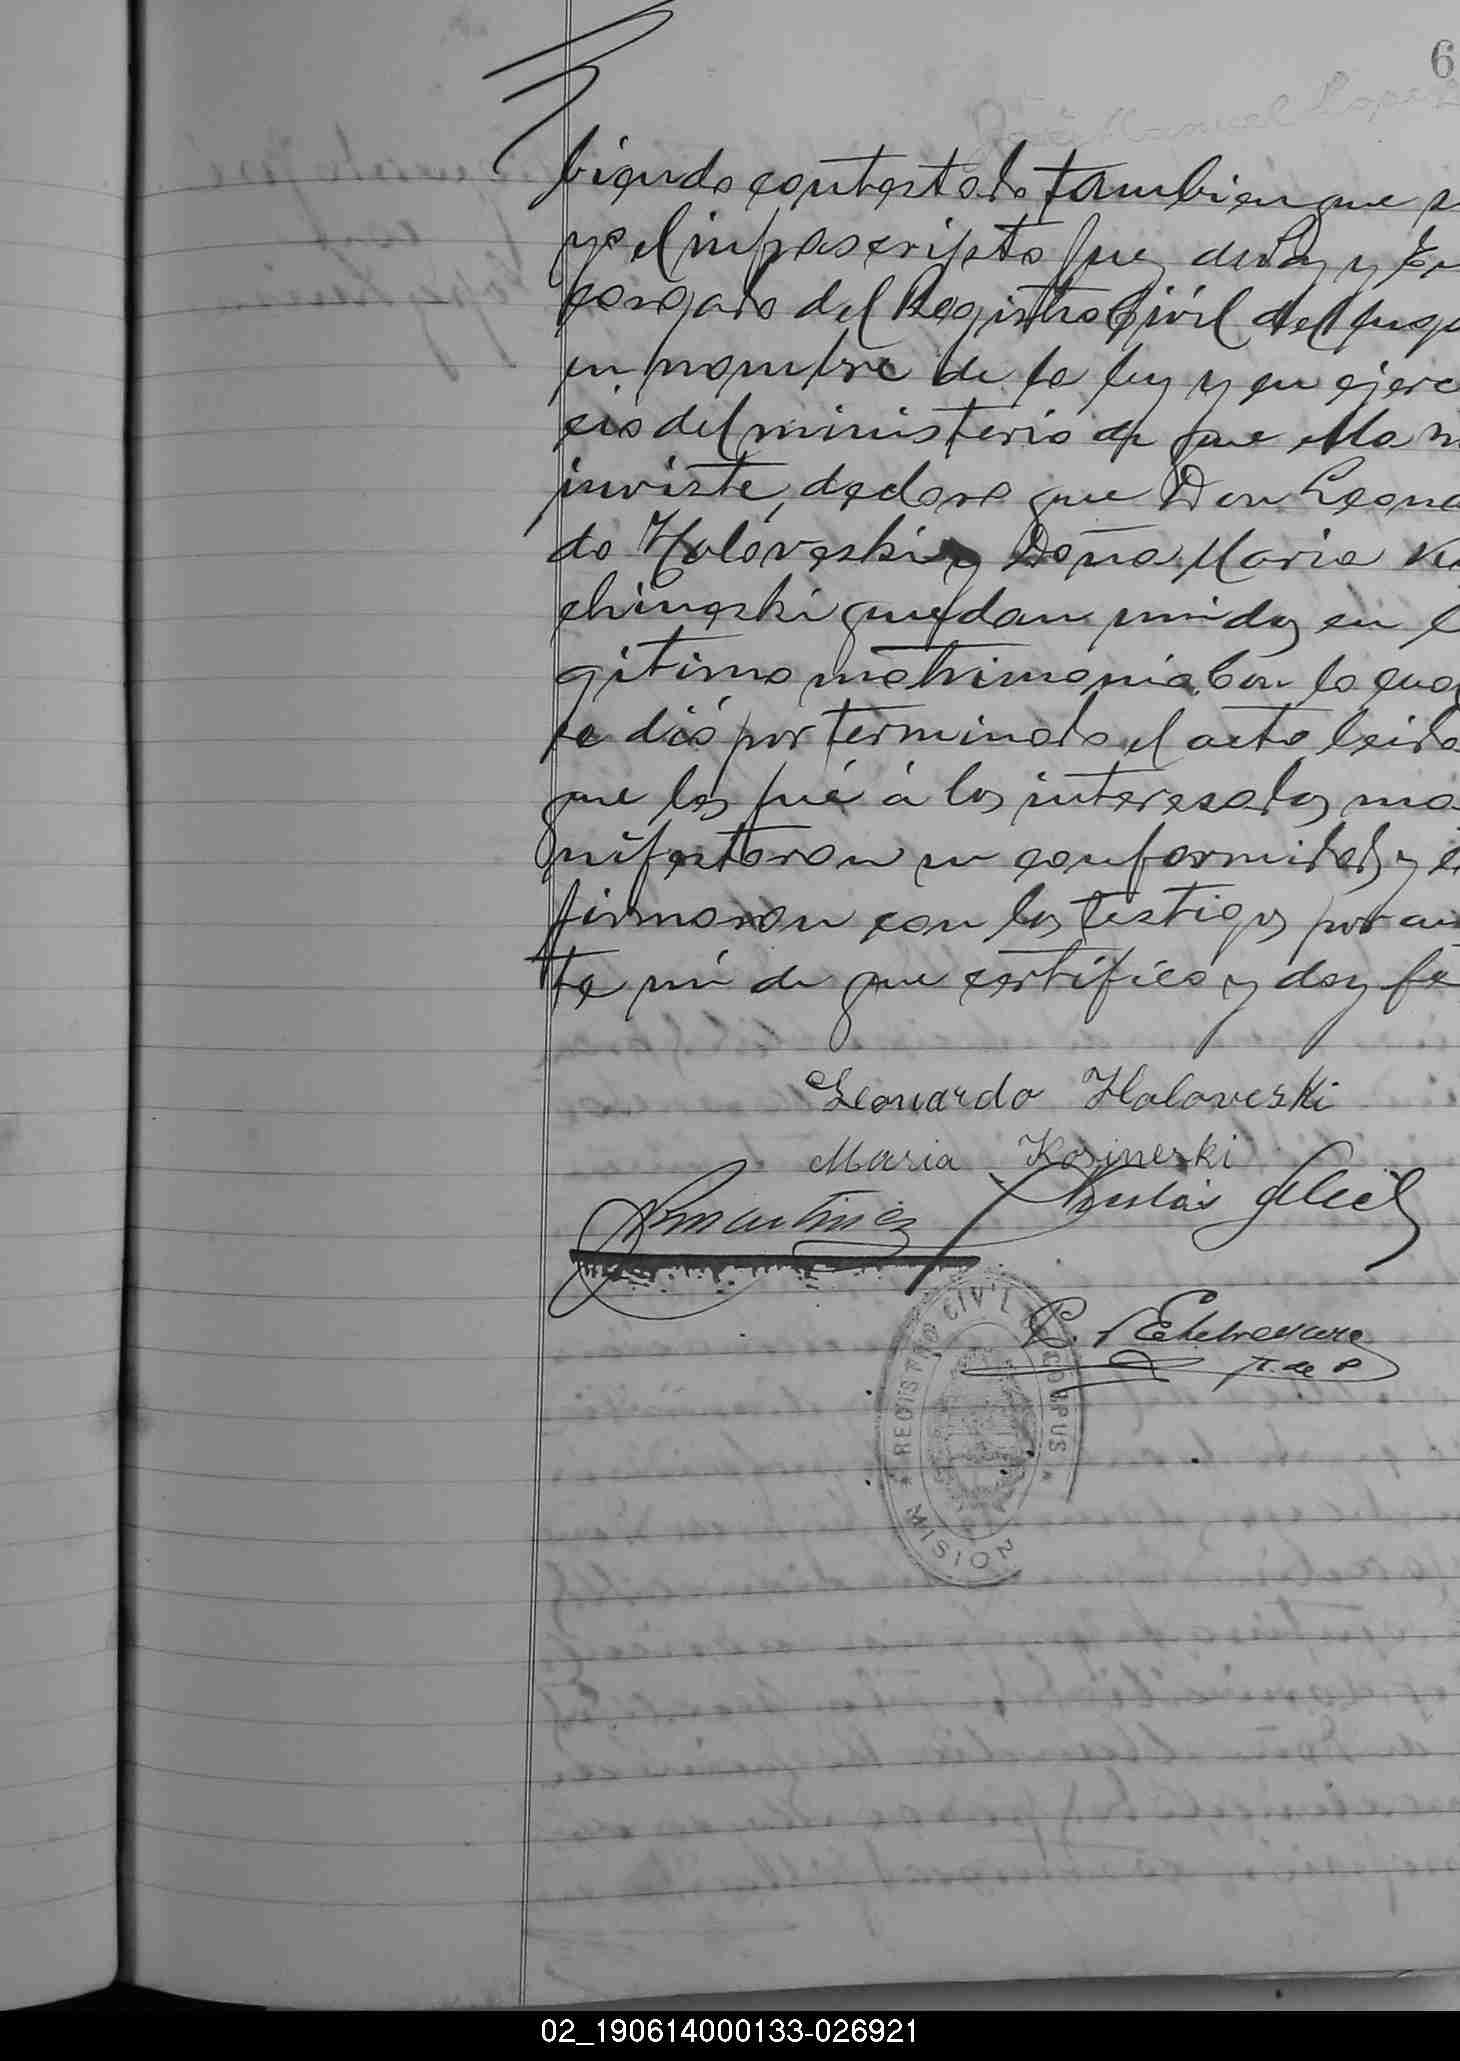 6
José Manuel Lopez
biendo contestado tambien que si
yo el infrascripto Juez de Paz y En
cargado del Registro Civil del juzga
en nombre de la ley y en ejerc
cio del ministerio de que ella m
inviste, declaro que Don Leona
do Holoveski y Doña Maria
chineski quedan unidos en l
gitimo matrimonio. Con lo cual
se dió por terminado el acto leida
que les fué á los interesados ma
nifestaron su conformidad y
firmaron con los testigos por an
te mi de que certifico y doy fé
Leonardo Holoveski
Maria Kosineski
Martinez
Nicolás
C. Echevarria
J. de P.
REGISTRO CIVIL CORPUS
* MISION
02_190614000133-026921